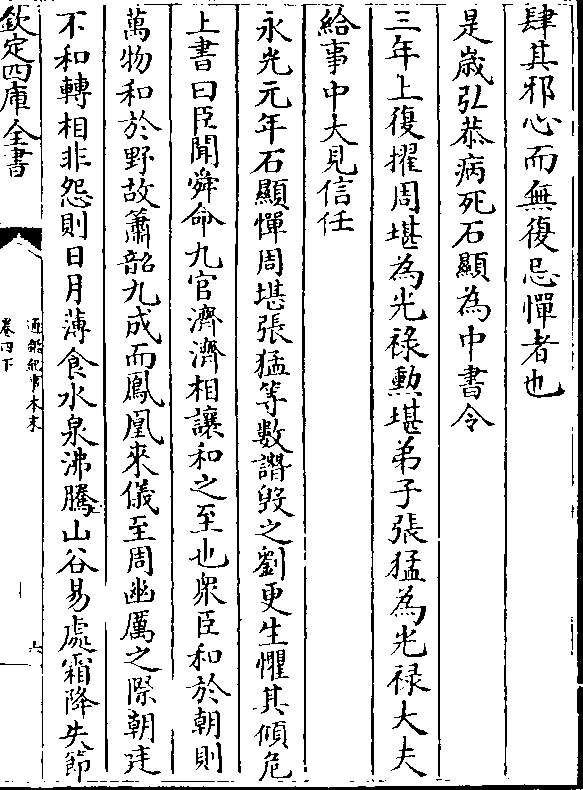 肆其邪心而無復忌憚者也
是歳弘恭病死石顯為中書令
三年上復擢周堪為光祿勲堪弟子張猛為光禄大夫
給事中大見信任
永光元年石顯憚周堪張猛等數譖毀之劉更生懼其傾危
上書曰臣聞舜命九官濟濟相讓和之至也衆臣和於朝則
萬物和於野故簫韶九成而鳳凰來儀至周幽厲之際朝廷
不和轉相非怨則日月薄食水泉沸騰山谷易處霜降失節
欽定四庫全書
通鑑紀事本末
卷四下
六